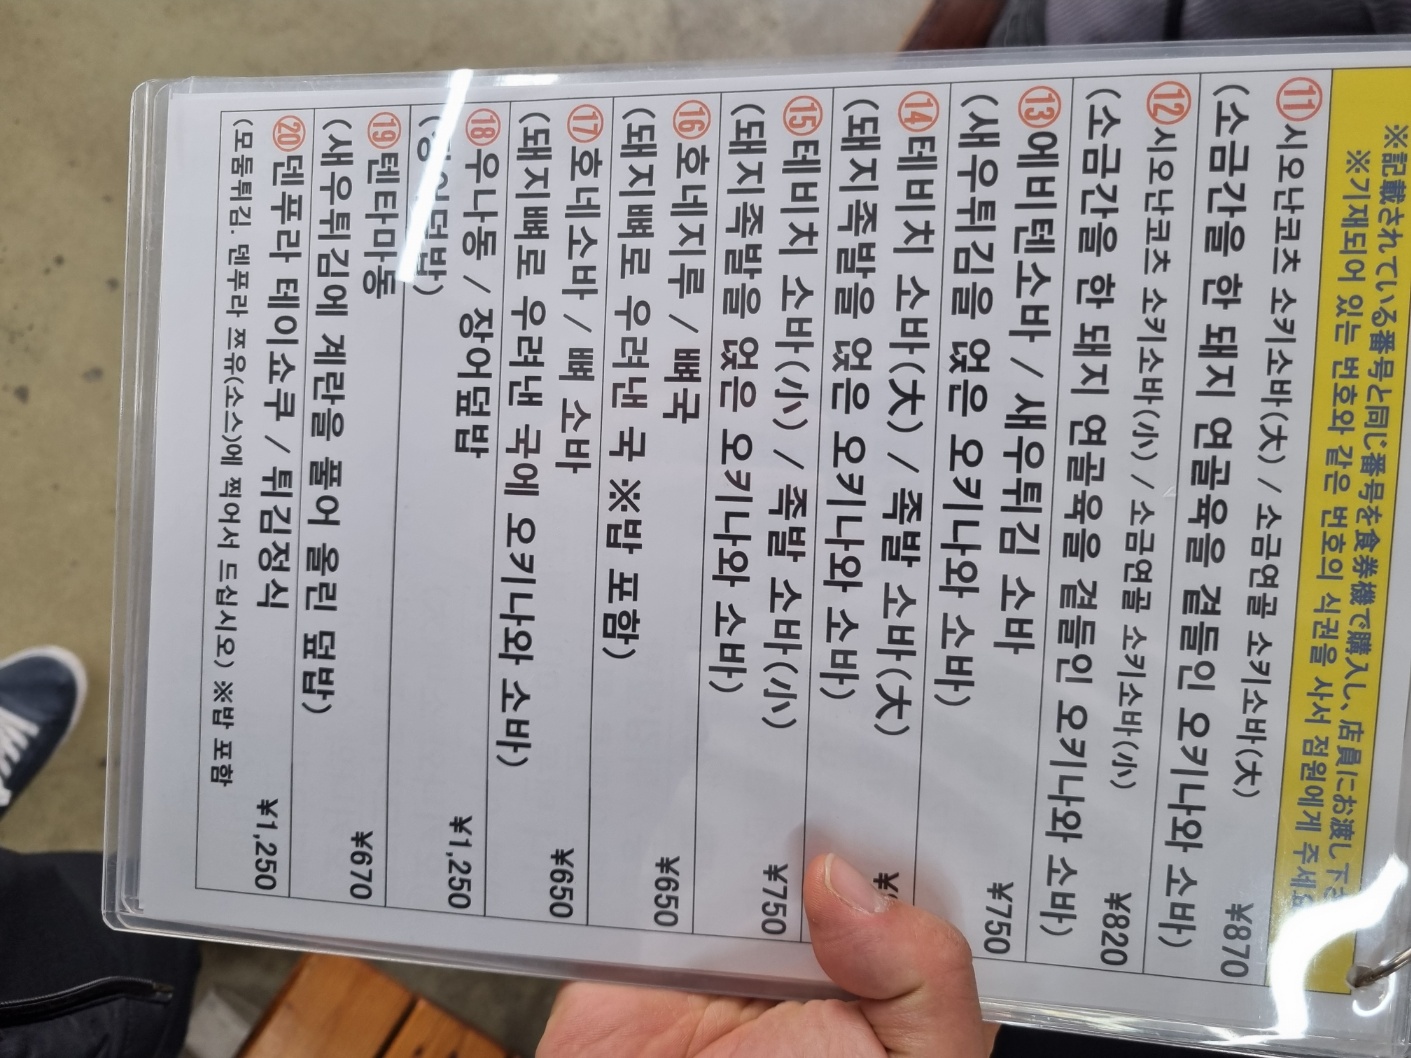 ※記載されている番号と同じ番号を食券機で購入し、店員にお渡し下さ
※기재되어 있는 번호와 같은 번호의 식권을 사서 점원에게 주세요
⑪시오난코츠 소키소바(大) / 소금연골 소키소바(大)
(소금간을 한 돼지 연골육을 곁들인 오키나와 소바) ¥870
⑫시오난코츠 소키소바(小) / 소금연골 소키소바(小)
(소금간을 한 돼지 연골육을 곁들인 오키나와 소바) ¥820
⑬에비텐소바 / 새우튀김 소바
(새우튀김을 얹은 오키나와 소바) ¥750
⑭테비치 소바(大) / 족발 소바(大)
(돼지족발을 얹은 오키나와 소바)
⑮테비치 소바(小) / 족발 소바(小)
(돼지족발을 얹은 오키나와 소바) ¥750
⑯호네지루 / 뼈국
(돼지뼈로 우려낸 국 ※밥 포함) ¥650
⑰호네소바 / 뼈 소바
(돼지뼈로 우려낸 국에 오키나와 소바) ¥650
⑱우나동 / 장어덮밥
(장어덮밥) ¥1,250
⑲텐타마동
(새우튀김에 계란을 풀어 올린 덮밥) ¥670
⑳덴푸라 테이쇼쿠 / 튀김정식
(모듬튀김. 덴푸라 쯔유(소스)에 찍어서 드십시오) ※밥 포함 ¥1,250